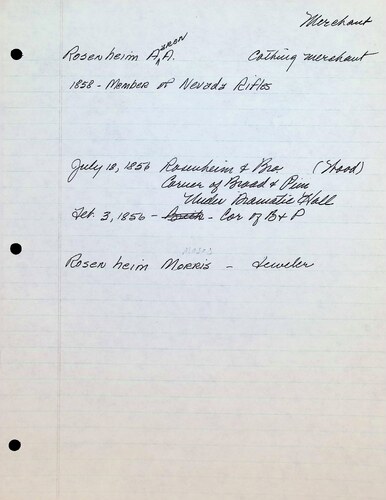 Merchant
Rosenheim A. A. Cothing merchant
aron
1858 - Member of Nevada Rifles
July 18, 1856 Rosenheim & Bro (Wood)
Corner of Broad & Pine
Under Dramatic Hall
Feb. 3, 1856 - - Cor of B & P
Rosenheim Morris - Jeweler